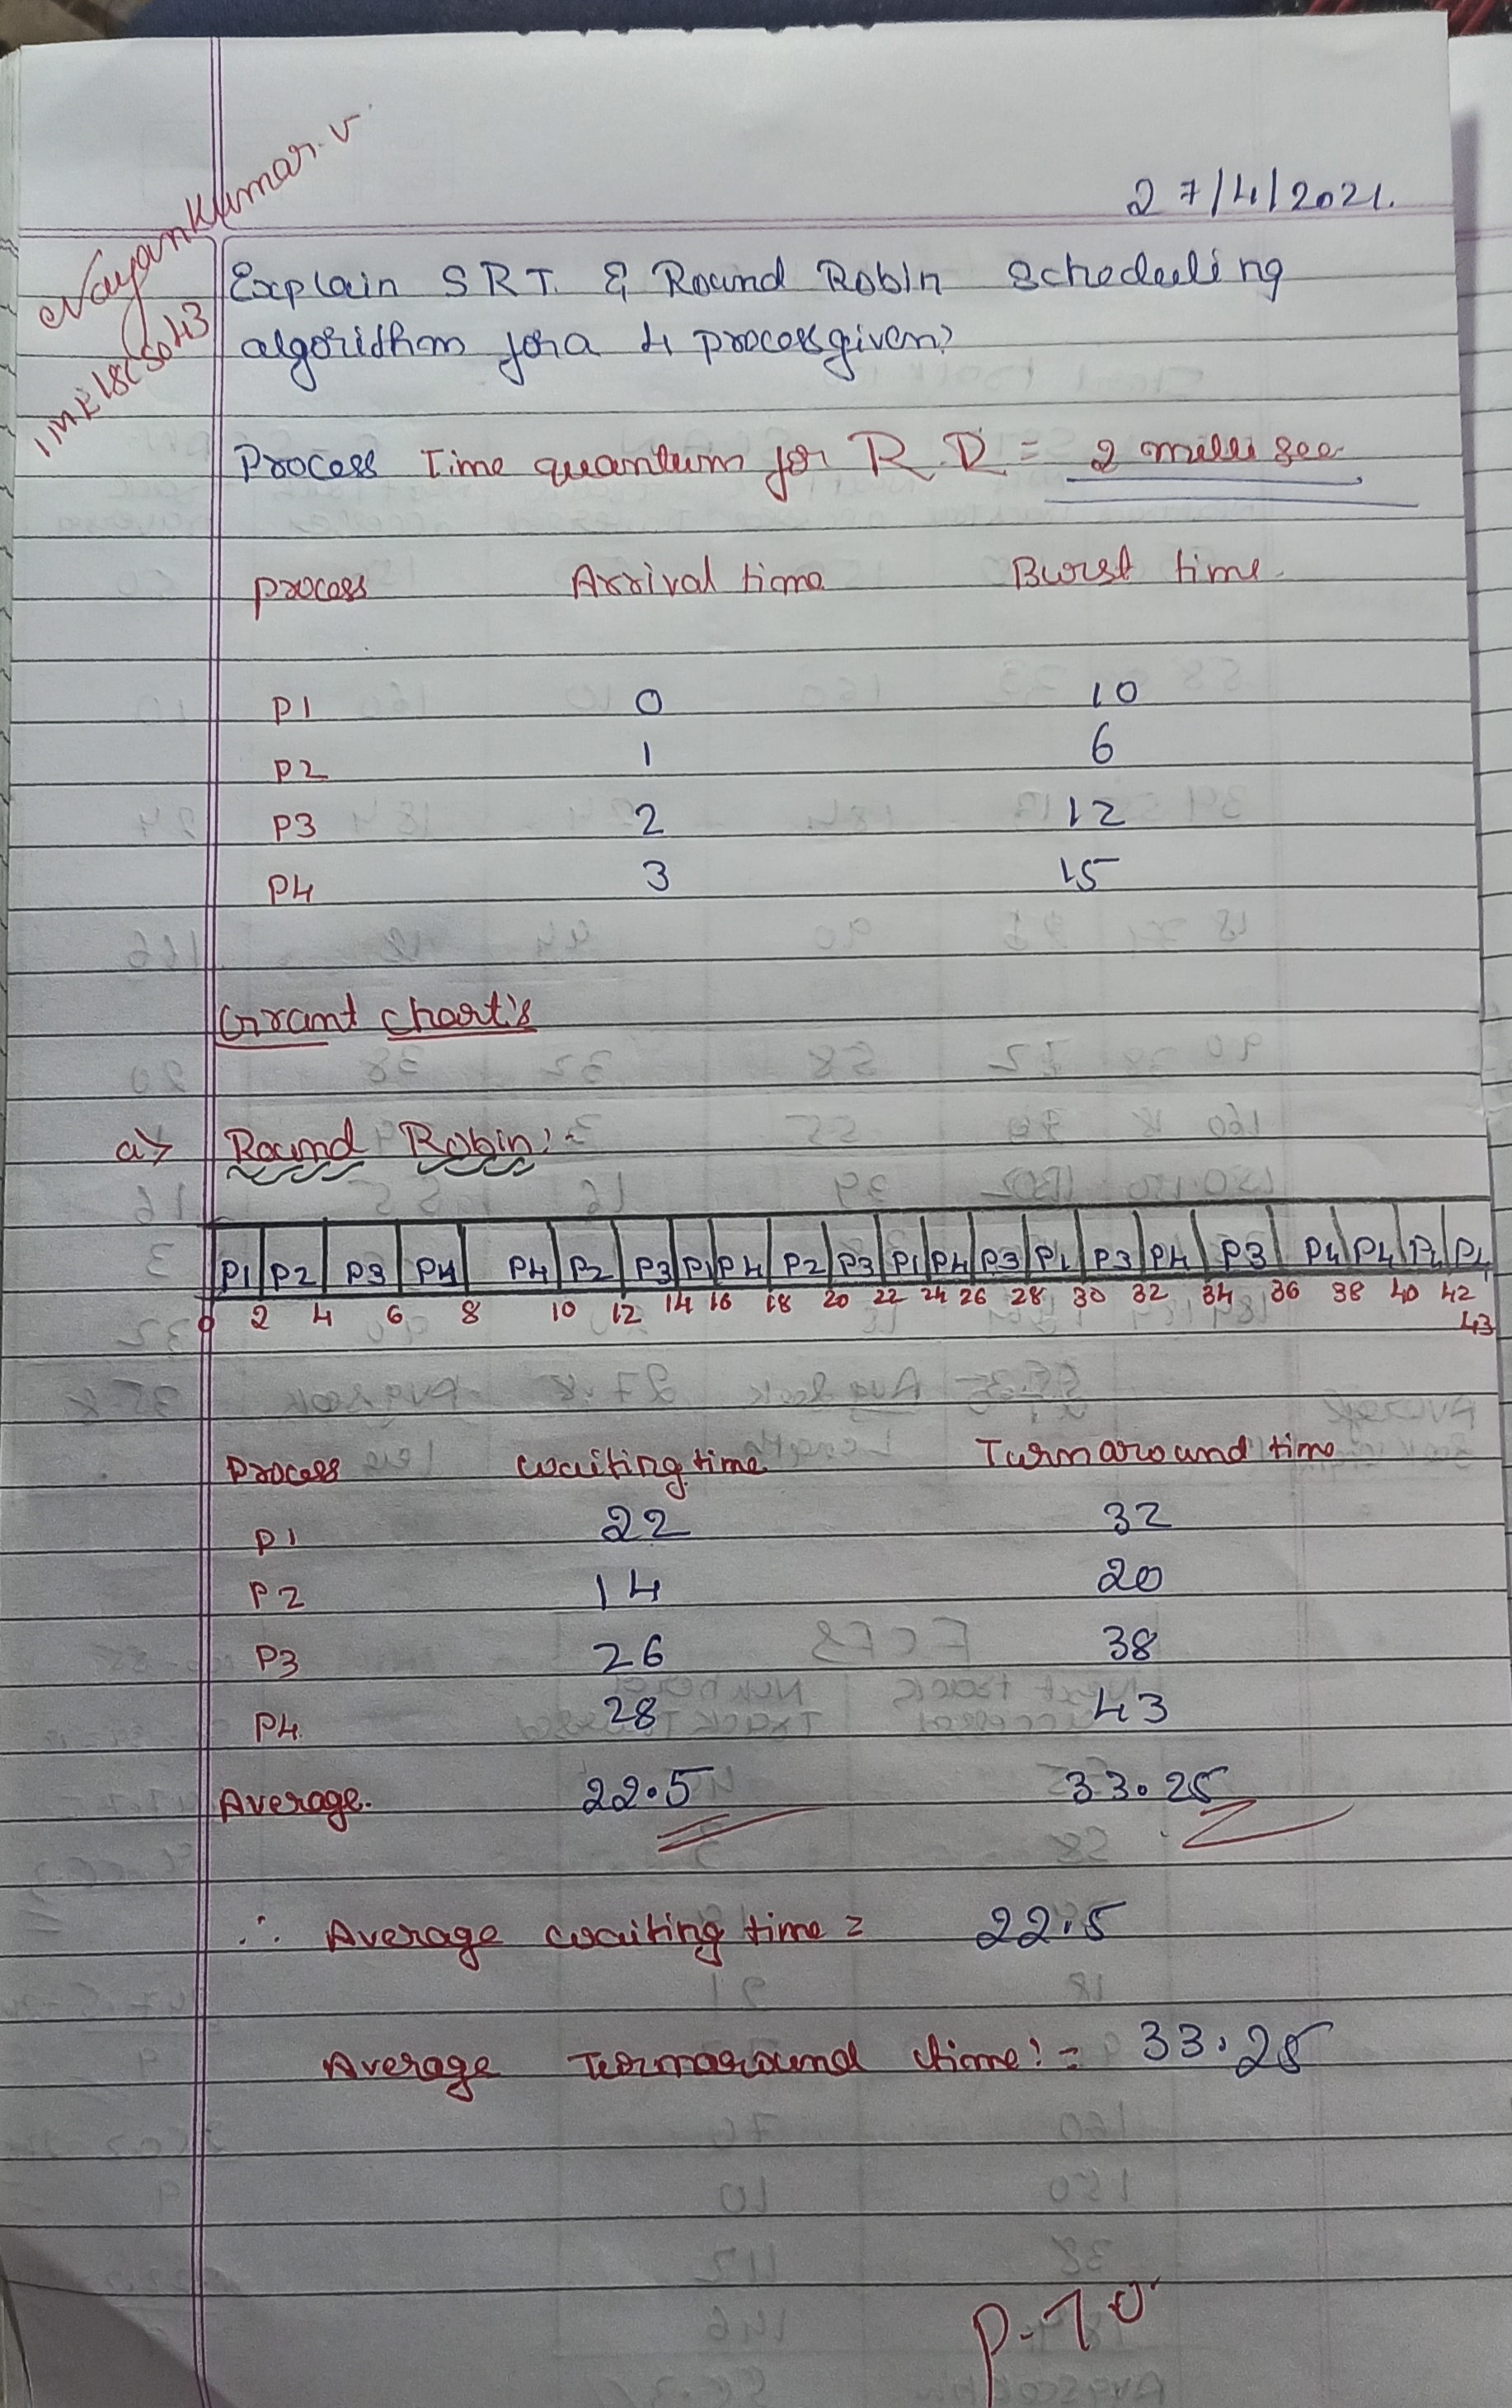 27/4/2021.
Nayan Kumar. V
1ME18CS043
Explain SRT & Round Robin Scheduling
algorithm for a 4 process given?
Process Time quantum for R.R = 2 milli sec
Process Arrival time Burst time.
P1 0 10
P2 1 6
P3 2 12
P4 3 15
Grant chart's
a> Round Robin:-
P1 P2 P3 P4 P4 P2 P3 P1 P4 P2 P3 P1 P4 P3 P1 P3 P4 P3 P4 P4 P4 P4
0 2 4 6 8 10 12 14 16 18 20 22 24 26 28 30 32 34 36 38 40 42
43
Process waiting time Turnaround time
P1 22 32
P2 14 20
P3 26 38
P4 28 43
Average. 22.5 33.25
∴ Average waiting time = 22.5
Average Turnaround time:= 33.25
P.T.O